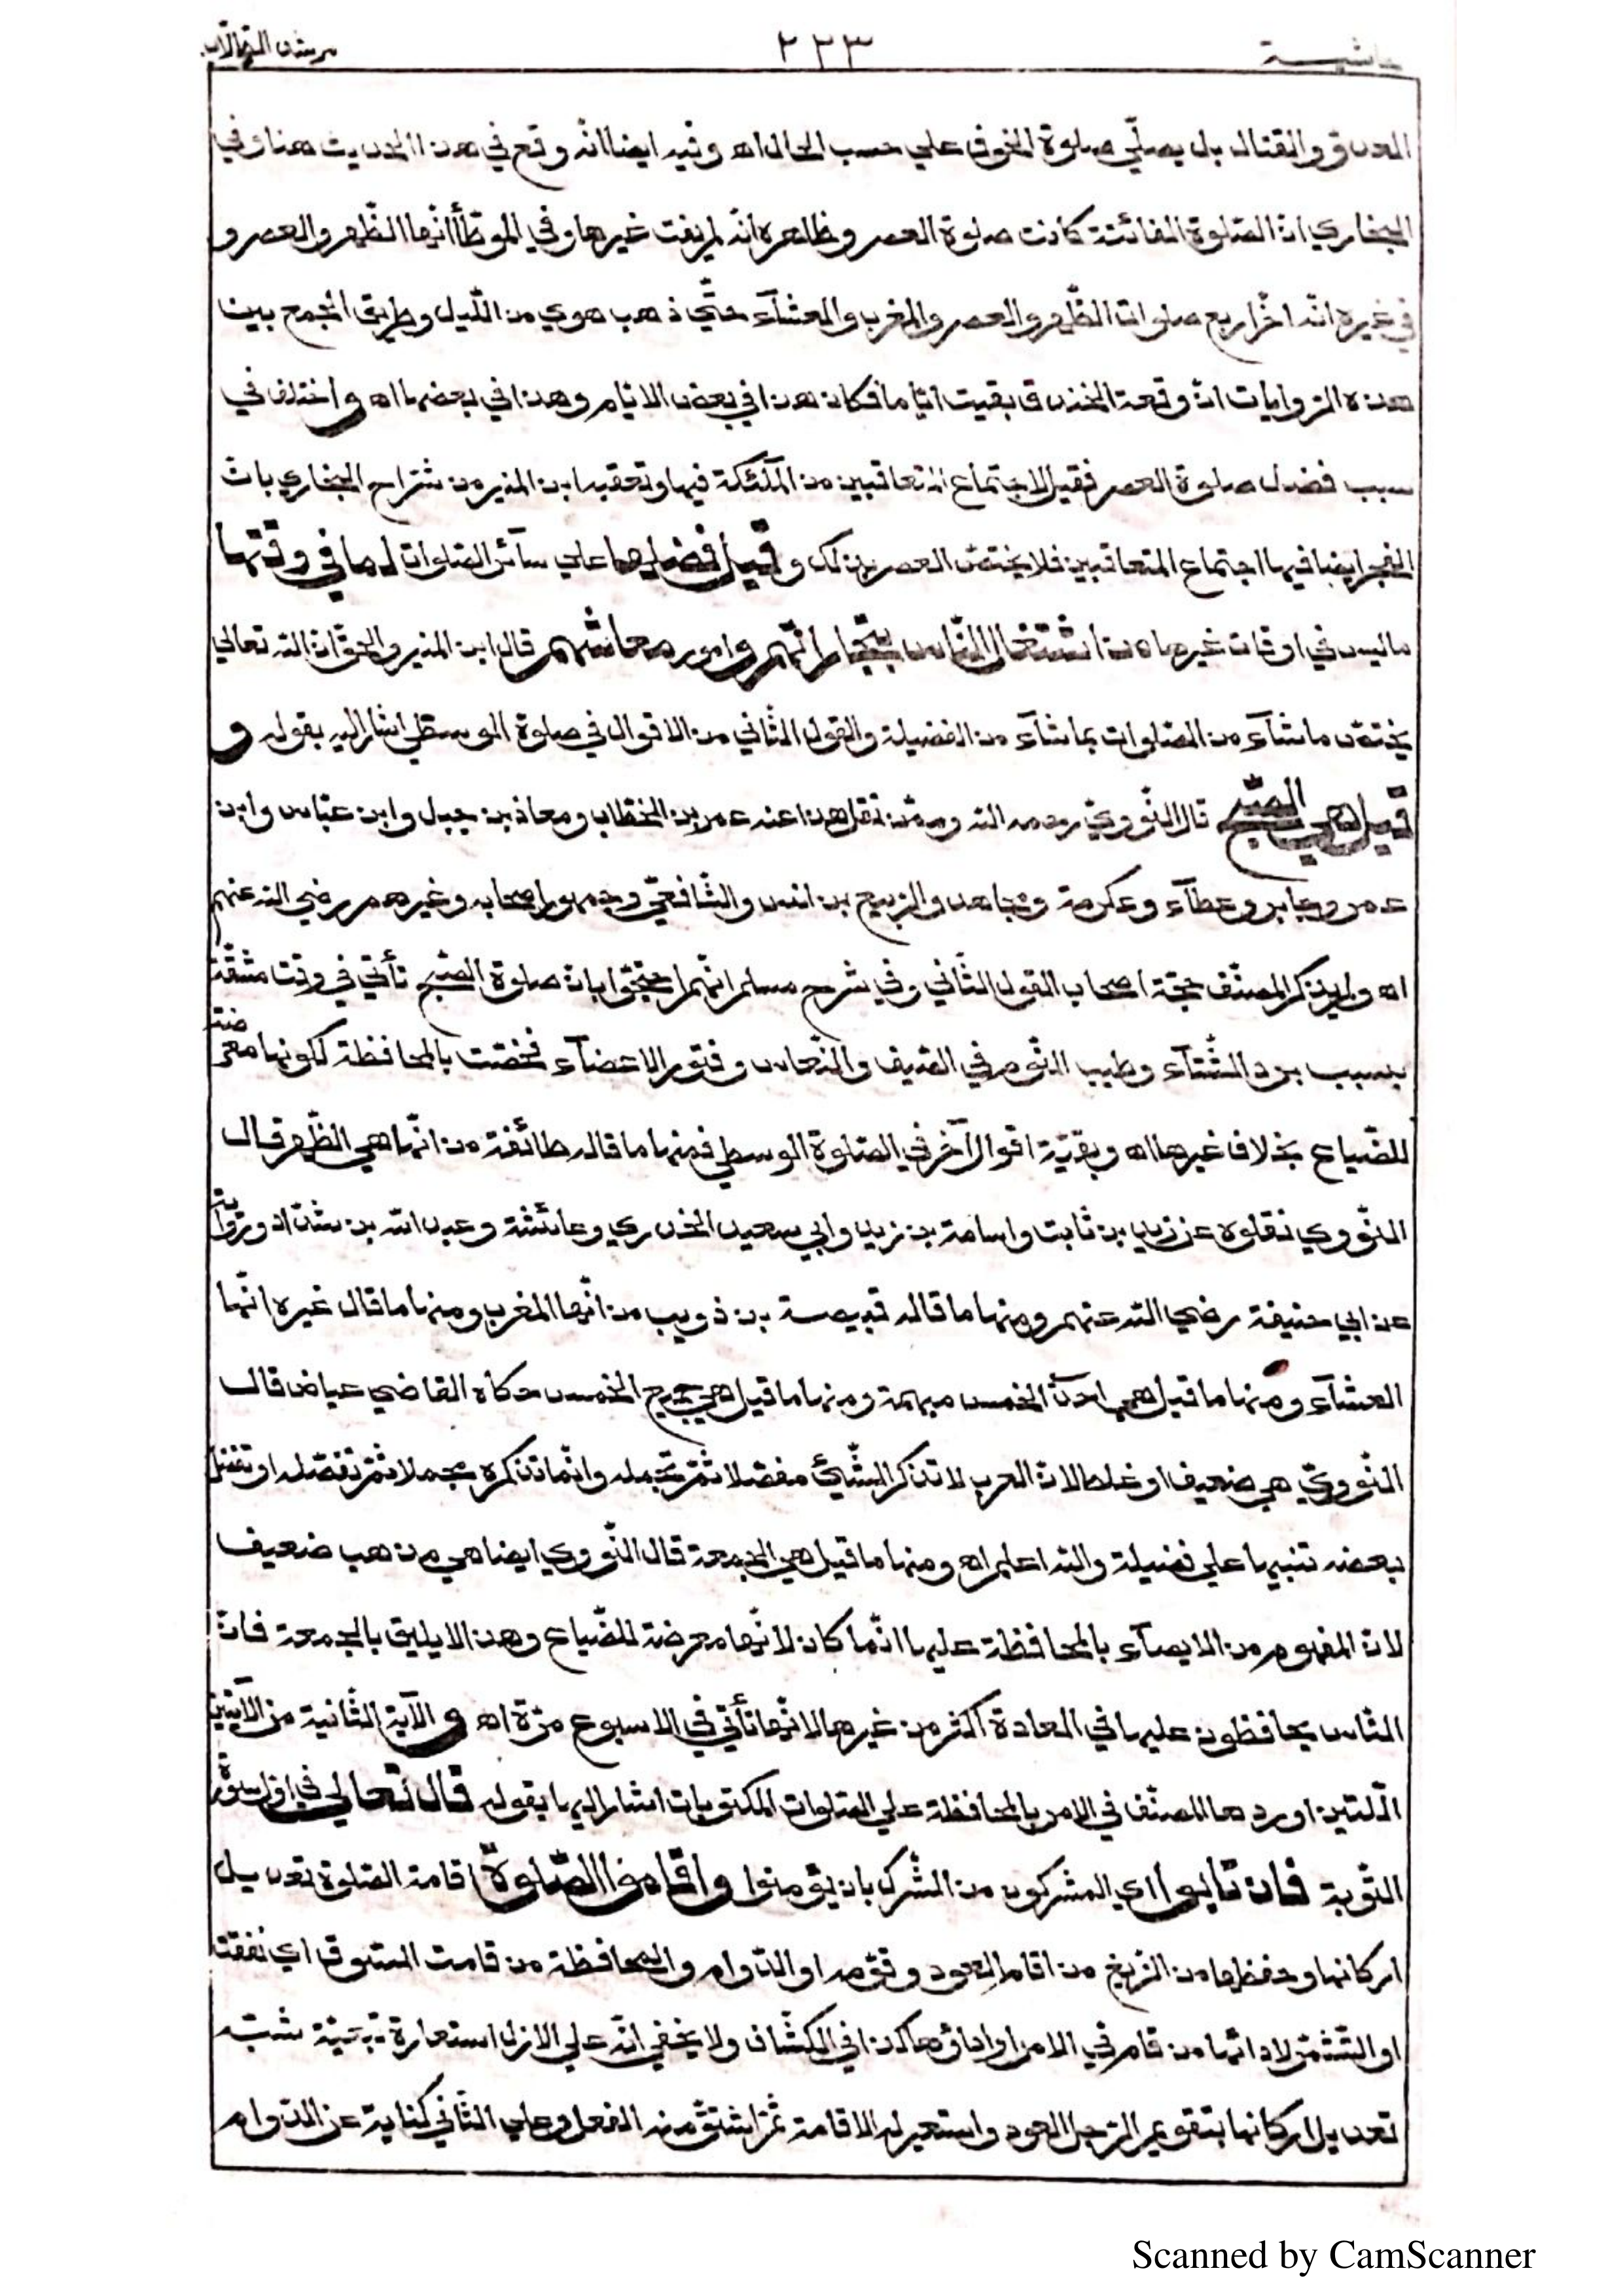 حاشية ٢٣٣ مرشد الطلاب
العدو والقتال بل يصلّي صلوة الخوف علي حسب الحال اه وفيه ايضا انّه وقع في هذا الحديث هنا وفي
البخاري انّ الصّلوة الفائتة كانت صلوة العصر وظاهره انّه لم يفت غيرها وفي الموطّأ انّها الظّهر والعصر و
في غيره انّه اخّر اربع صلوات الظّهر والعصر والمغرب والعشآء حتّي ذهب هوي من اللّيل وطريق الجمع بين
هذه الرّوايات انّ وقعة الخندق بقيت ايّاما فكان هذا في بعض الايّام وهذا في بعضها اه واختلف في
سبب فضل صلوة العصر فقيل لاجتماع المتعاقبين من الملٓئكة فيها وتعقبه ابن المنير من شرّاح البخاري بانّ
الفجر ايضا فيها اجتماع المتعاقبين فلا يختصّ العصر بذلك وقيل فضلها علي سآئر الصّلوات لما في وقتها
ما ليس في اوقات غيرها من اشتغال النّاس بتجاراتهم وامور معاشهم قال ابن المنير والحقّ انّ الله تعالي
يختصّ ما شآء من الصّلوات بما شآء من الفضيلة والقول الثّاني من الاقوال في صلوة الوسطي اشار اليه بقوله و
قيل هي الصّبح قال النّووي رحمه الله وممّن نقل هذا عنه عمر بن الخطّاب ومعاذ بن جبل وابن عبّاس وابن
عمر وجابر وعطآء وعكرمة ومجاهد والرّبيع بن انس والشّافعيّ وجمهور اصحابه وغيرهم رضي الله عنهم
اه ولم يذكر المصنّف حجّة اصحاب القول الثّاني وفي شرح مسلم انّهم احتجّوا بانّ صلوة الصّبح تأتي في وقت مشقّة
بسبب برد الشّتآء وطيب النّوم في الصّيف والنّعاس وفتور الاعضآء فخصّت بالمحافظة لكونها معرضة
للضّياع بخلاف غيرها اه وبقيّة اقوال آخر في الصّلوة الوسطي فمنها ما قاله طائفة من انّها هي الظّهر قال
النّووي نقلوه عن زيد بن ثابت واسامة بن زيد وابي سعيد الخدري وعائشة وعبد الله بن شدّاد ورواية
عن ابي حنيفة رضي الله عنهم ومنها ما قاله قبيصة بن ذويب من انّها المغرب ومنها ما قال غيره انّها
العشآء ومنها ما قيل هي احدي الخمس مبهمة ومنها ما قيل هي جميع الخمس حكاه القاضي عياض قال
النّوويّ هي ضعيف او غلط لانّ العرب لا تذكر الشّيئ مفصّلا ثمّ تجمله وانّما تذكره مجملا ثمّ تفصّله او تفصّل
بعضه تنبيها علي فضيلة والله اعلم اه ومنها ما قيل هي الجمعة قال النّووي ايضا هي مذهب ضعيف
لانّ المفهوم من الايصآء بالمحافظة عليها انّما كان لانّها معرضة للضّياع وهذا لا يليق بالجمعة فانّ
النّاس يحافظون عليها في العادة اكثر من غيرها لانّها تأتي في الاسبوع مرّة اه و الآية الثّانية من الآيتين
اللّتين اوردها المصنّف في الامر بالمحافظة علي الصّلوات المكتوبات اشار اليها بقوله قال تعالي في اوّل سورة
التّوبة فان تابوا اي المشركون من الشّرك بان يؤمنوا واقاموا الصّلوة اقامة الصّلوة تعديل
اركانها وحفظها من الزّيغ من اقام العود وقوّمه او الدّوام والمحافظة من قامت السّوق اي نفقت
او التّشمّر لادائها من قام في الامر او اداؤها كذا في الكشّاف ولا يخفي انّه علي الاول استعارة تبعيّة شبّه
تعديل اركانها بتقويم الرّجل العود واستعير له الاقامة ثمّ اشتقّ منه الفعل وعلي الثّاني كناية عن الدّوام
Scanned by CamScanner